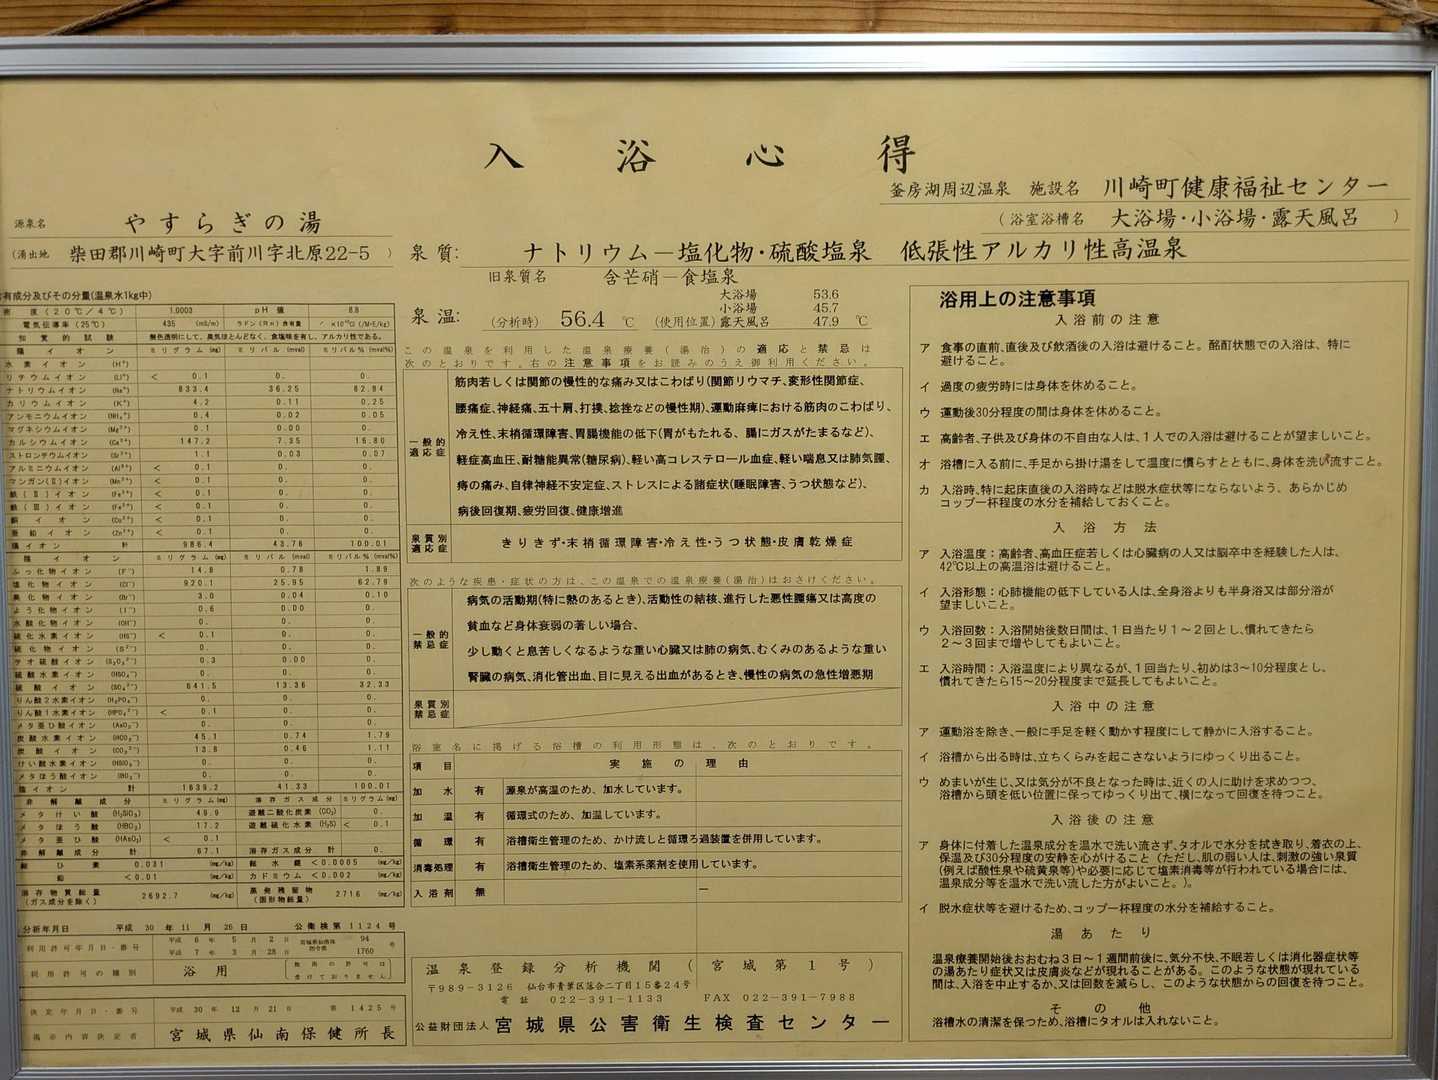 入浴心得
釜房湖周辺温泉 施設名 川崎町健康福祉センター
(浴室浴槽名 大浴場・小浴場・露天風呂 )
源泉名 やすらぎの湯
(湧出地 柴田郡川崎町大字前川字北原22-5 )
泉質: ナトリウム－塩化物・硫酸塩泉 低張性アルカリ性高温泉
旧泉質名 含芒硝－食塩泉
泉温: (分析時) 56.4 ℃ (使用位置)
大浴場 53.6
小浴場 45.7
露天風呂 47.9 ℃
有成分及びその分量(温泉水1kg中)
密度(20℃/4℃) 1.0003 pH値 8.8
電気伝導率(25℃) 435 (mS/m) ラドン(Rn)含有量
知覚的試験 無色透明にして、臭気ほとんどなく、食塩味を有し、アルカリ性である。
陽イオン ミリグラム(mg) ミリバル(mval) ミリバル%(mval%)
水素イオン (H⁺) 0. 0.
リチウムイオン (Li⁺) < 0.1 0. 0.
ナトリウムイオン (Na⁺) 833.4 36.25 82.84
カリウムイオン (K⁺) 4.2 0.11 0.25
アンモニウムイオン (NH₄⁺) 0.4 0.02 0.05
マグネシウムイオン (Mg²⁺) 0.1 0.00 0.
カルシウムイオン (Ca²⁺) 147.2 7.35 16.80
ストロンチウムイオン (Sr²⁺) 1.1 0.03 0.07
アルミニウムイオン (Al³⁺) < 0.1 0. 0.
マンガン(Ⅱ)イオン (Mn²⁺) < 0.1 0. 0.
鉄(Ⅱ)イオン (Fe²⁺) < 0.1 0. 0.
鉄(Ⅲ)イオン (Fe³⁺) < 0.1 0. 0.
銅イオン (Cu²⁺) < 0.1 0. 0.
亜鉛イオン (Zn²⁺) < 0.1 0. 0.
陽イオン計 986.4 43.76 100.01
陰イオン ミリグラム(mg) ミリバル(mval) ミリバル%(mval%)
ふっ化物イオン (F⁻) 14.8 0.78 1.89
塩化物イオン (Cl⁻) 920.1 25.95 62.79
臭化物イオン (Br⁻) 3.0 0.04 0.10
よう化物イオン (I⁻) 0.6 0.00 0.
水酸化物イオン (OH⁻) 0. 0. 0.
硫化水素イオン (HS⁻) < 0.1 0. 0.
硫化物イオン (S²⁻) 0. 0.
チオ硫酸イオン (S₂O₃²⁻) 0.3 0.00 0.
硫酸水素イオン (HSO₄⁻) 0. 0. 0.
硫酸イオン (SO₄²⁻) 641.5 13.36 32.33
りん酸2水素イオン (H₂PO₄⁻) 0. 0. 0.
りん酸1水素イオン (HPO₄²⁻) < 0.1 0. 0.
メタ亜ひ酸イオン (AsO₂⁻) 0. 0. 0.
炭酸水素イオン (HCO₃⁻) 45.1 0.74 1.79
炭酸イオン (CO₃²⁻) 13.8 0.46 1.11
けい酸水素イオン (HSiO₃⁻) 0. 0. 0.
メタほう酸イオン (BO₂⁻) 0. 0. 0.
陰イオン計 1639.2 41.33 100.01
非解離成分 ミリグラム(mg) 溶存ガス成分 ミリグラム(mg)
メタけい酸 (H₂SiO₃) 49.9 遊離二酸化炭素 (CO₂) 0.
メタほう酸 (HBO₂) 17.2 遊離硫化水素 (H₂S) < 0.1
メタ亜ひ酸 (HAsO₂) < 0.1
非解離成分計 67.1 溶存ガス成分計 0.
総ひ素 0.031 (mg/kg) 総水銀 <0.0005 (mg/kg)
鉛 <0.01 (mg/kg) カドミウム <0.002 (mg/kg)
溶存物質総量(ガス成分を除く) 2692.7 (mg/kg) 蒸発残留物(固形物総量) 2716 (mg/kg)
分析年月日 平成 30 年 11 月 26 日 公衛検第1124号
利用許可年月日・番号 平成 6 年 5 月 2 日 宮城県仙南保指令第 94 号
平成 7 年 3 月 28 日 1760
利用許可の種別 浴用 (飲用の許可は受けておりません)
決定年月日・番号 平成 30 年 12 月 21 日 第1425号
掲示内容決定者 宮城県仙南保健所長
この温泉を利用した温泉療養(湯治)の適応と禁忌は
次のとおりです。右の注意事項をお読みのうえ御利用ください。
一般的適応症
筋肉若しくは関節の慢性的な痛み又はこわばり(関節リウマチ、変形性関節症、
腰痛症、神経痛、五十肩、打撲、捻挫などの慢性期)、運動麻痺における筋肉のこわばり、
冷え性、末梢循環障害、胃腸機能の低下(胃がもたれる、腸にガスがたまるなど)、
軽症高血圧、耐糖能異常(糖尿病)、軽い高コレステロール血症、軽い喘息又は肺気腫、
痔の痛み、自律神経不安定症、ストレスによる諸症状(睡眠障害、うつ状態など)、
病後回復期、疲労回復、健康増進
泉質別適応症 きりきず・末梢循環障害・冷え性・うつ状態・皮膚乾燥症
次のような疾患・症状の方は、この温泉での温泉療養(湯治)はおさけください。
一般的禁忌症
病気の活動期(特に熱のあるとき)、活動性の結核、進行した悪性腫瘍又は高度の
貧血など身体衰弱の著しい場合、
少し動くと息苦しくなるような重い心臓又は肺の病気、むくみのあるような重い
腎臓の病気、消化管出血、目に見える出血があるとき、慢性の病気の急性増悪期
泉質別禁忌症
浴室名に掲げる浴槽の利用形態は、次のとおりです。
項目 実施の理由
加水 有 源泉が高温のため、加水しています。
加温 有 循環式のため、加温しています。
循環 有 浴槽衛生管理のため、かけ流しと循環ろ過装置を併用しています。
消毒処理 有 浴槽衛生管理のため、塩素系薬剤を使用しています。
入浴剤 無 ―
温泉登録分析機関(宮城第1号)
〒989-3126 仙台市青葉区落合二丁目15番24号
電話 022-391-1133 FAX 022-391-7988
公益財団法人 宮城県公害衛生検査センター
浴用上の注意事項
入浴前の注意
ア 食事の直前、直後及び飲酒後の入浴は避けること。酩酊状態での入浴は、特に
避けること。
イ 過度の疲労時には身体を休めること。
ウ 運動後30分程度の間は身体を休めること。
エ 高齢者、子供及び身体の不自由な人は、1人での入浴は避けることが望ましいこと。
オ 浴槽に入る前に、手足から掛け湯をして温度に慣らすとともに、身体を洗い流すこと。
カ 入浴時、特に起床直後の入浴時などは脱水症状等にならないよう、あらかじめ
コップ一杯程度の水分を補給しておくこと。
入浴方法
ア 入浴温度：高齢者、高血圧症若しくは心臓病の人又は脳卒中を経験した人は、
42℃以上の高温浴は避けること。
イ 入浴形態：心肺機能の低下している人は、全身浴よりも半身浴又は部分浴が
望ましいこと。
ウ 入浴回数：入浴開始後数日間は、1日当たり1～2回とし、慣れてきたら
2～3回まで増やしてもよいこと。
エ 入浴時間：入浴温度により異なるが、1回当たり、初めは3～10分程度とし、
慣れてきたら15～20分程度まで延長してもよいこと。
入浴中の注意
ア 運動浴を除き、一般に手足を軽く動かす程度にして静かに入浴すること。
イ 浴槽から出る時は、立ちくらみを起こさないようにゆっくり出ること。
ウ めまいが生じ、又は気分が不良となった時は、近くの人に助けを求めつつ、
浴槽から頭を低い位置に保ってゆっくり出て、横になって回復を待つこと。
入浴後の注意
ア 身体に付着した温泉成分を温水で洗い流さず、タオルで水分を拭き取り、着衣の上、
保温及び30分程度の安静を心がけること (ただし、肌の弱い人は、刺激の強い泉質
(例えば酸性泉や硫黄泉等)や必要に応じて塩素消毒等が行われている場合には、
温泉成分等を温水で洗い流した方がよいこと。)。
イ 脱水症状等を避けるため、コップ一杯程度の水分を補給すること。
湯あたり
温泉療養開始後おおむね3日～1週間前後に、気分不快、不眠若しくは消化器症状等
の湯あたり症状又は皮膚炎などが現れることがある。このような状態が現れている
間は、入浴を中止するか、又は回数を減らし、このような状態からの回復を待つこと。
その他
浴槽水の清潔を保つため、浴槽にタオルは入れないこと。